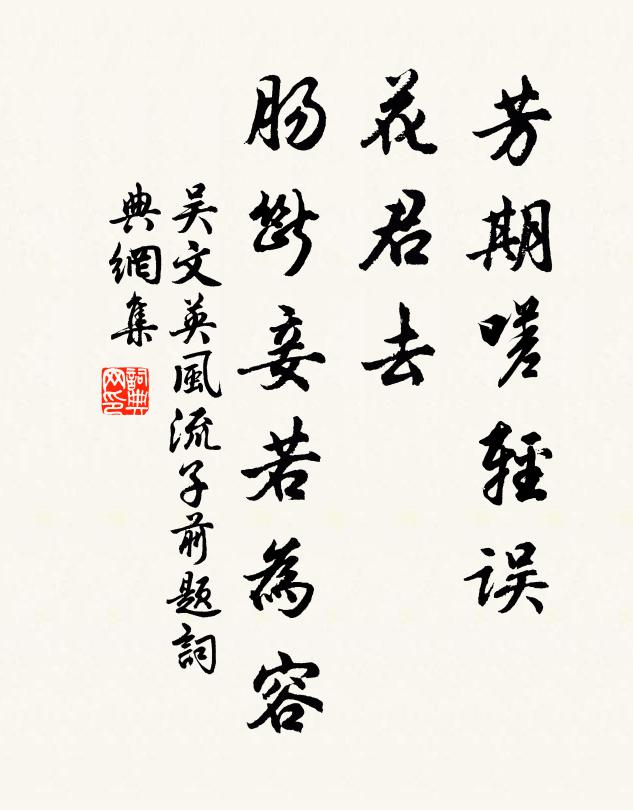 芳期嗟輕誤
花君去
腸斷妾若為容
吳文英風流子前題詞
典網集
詞典網印